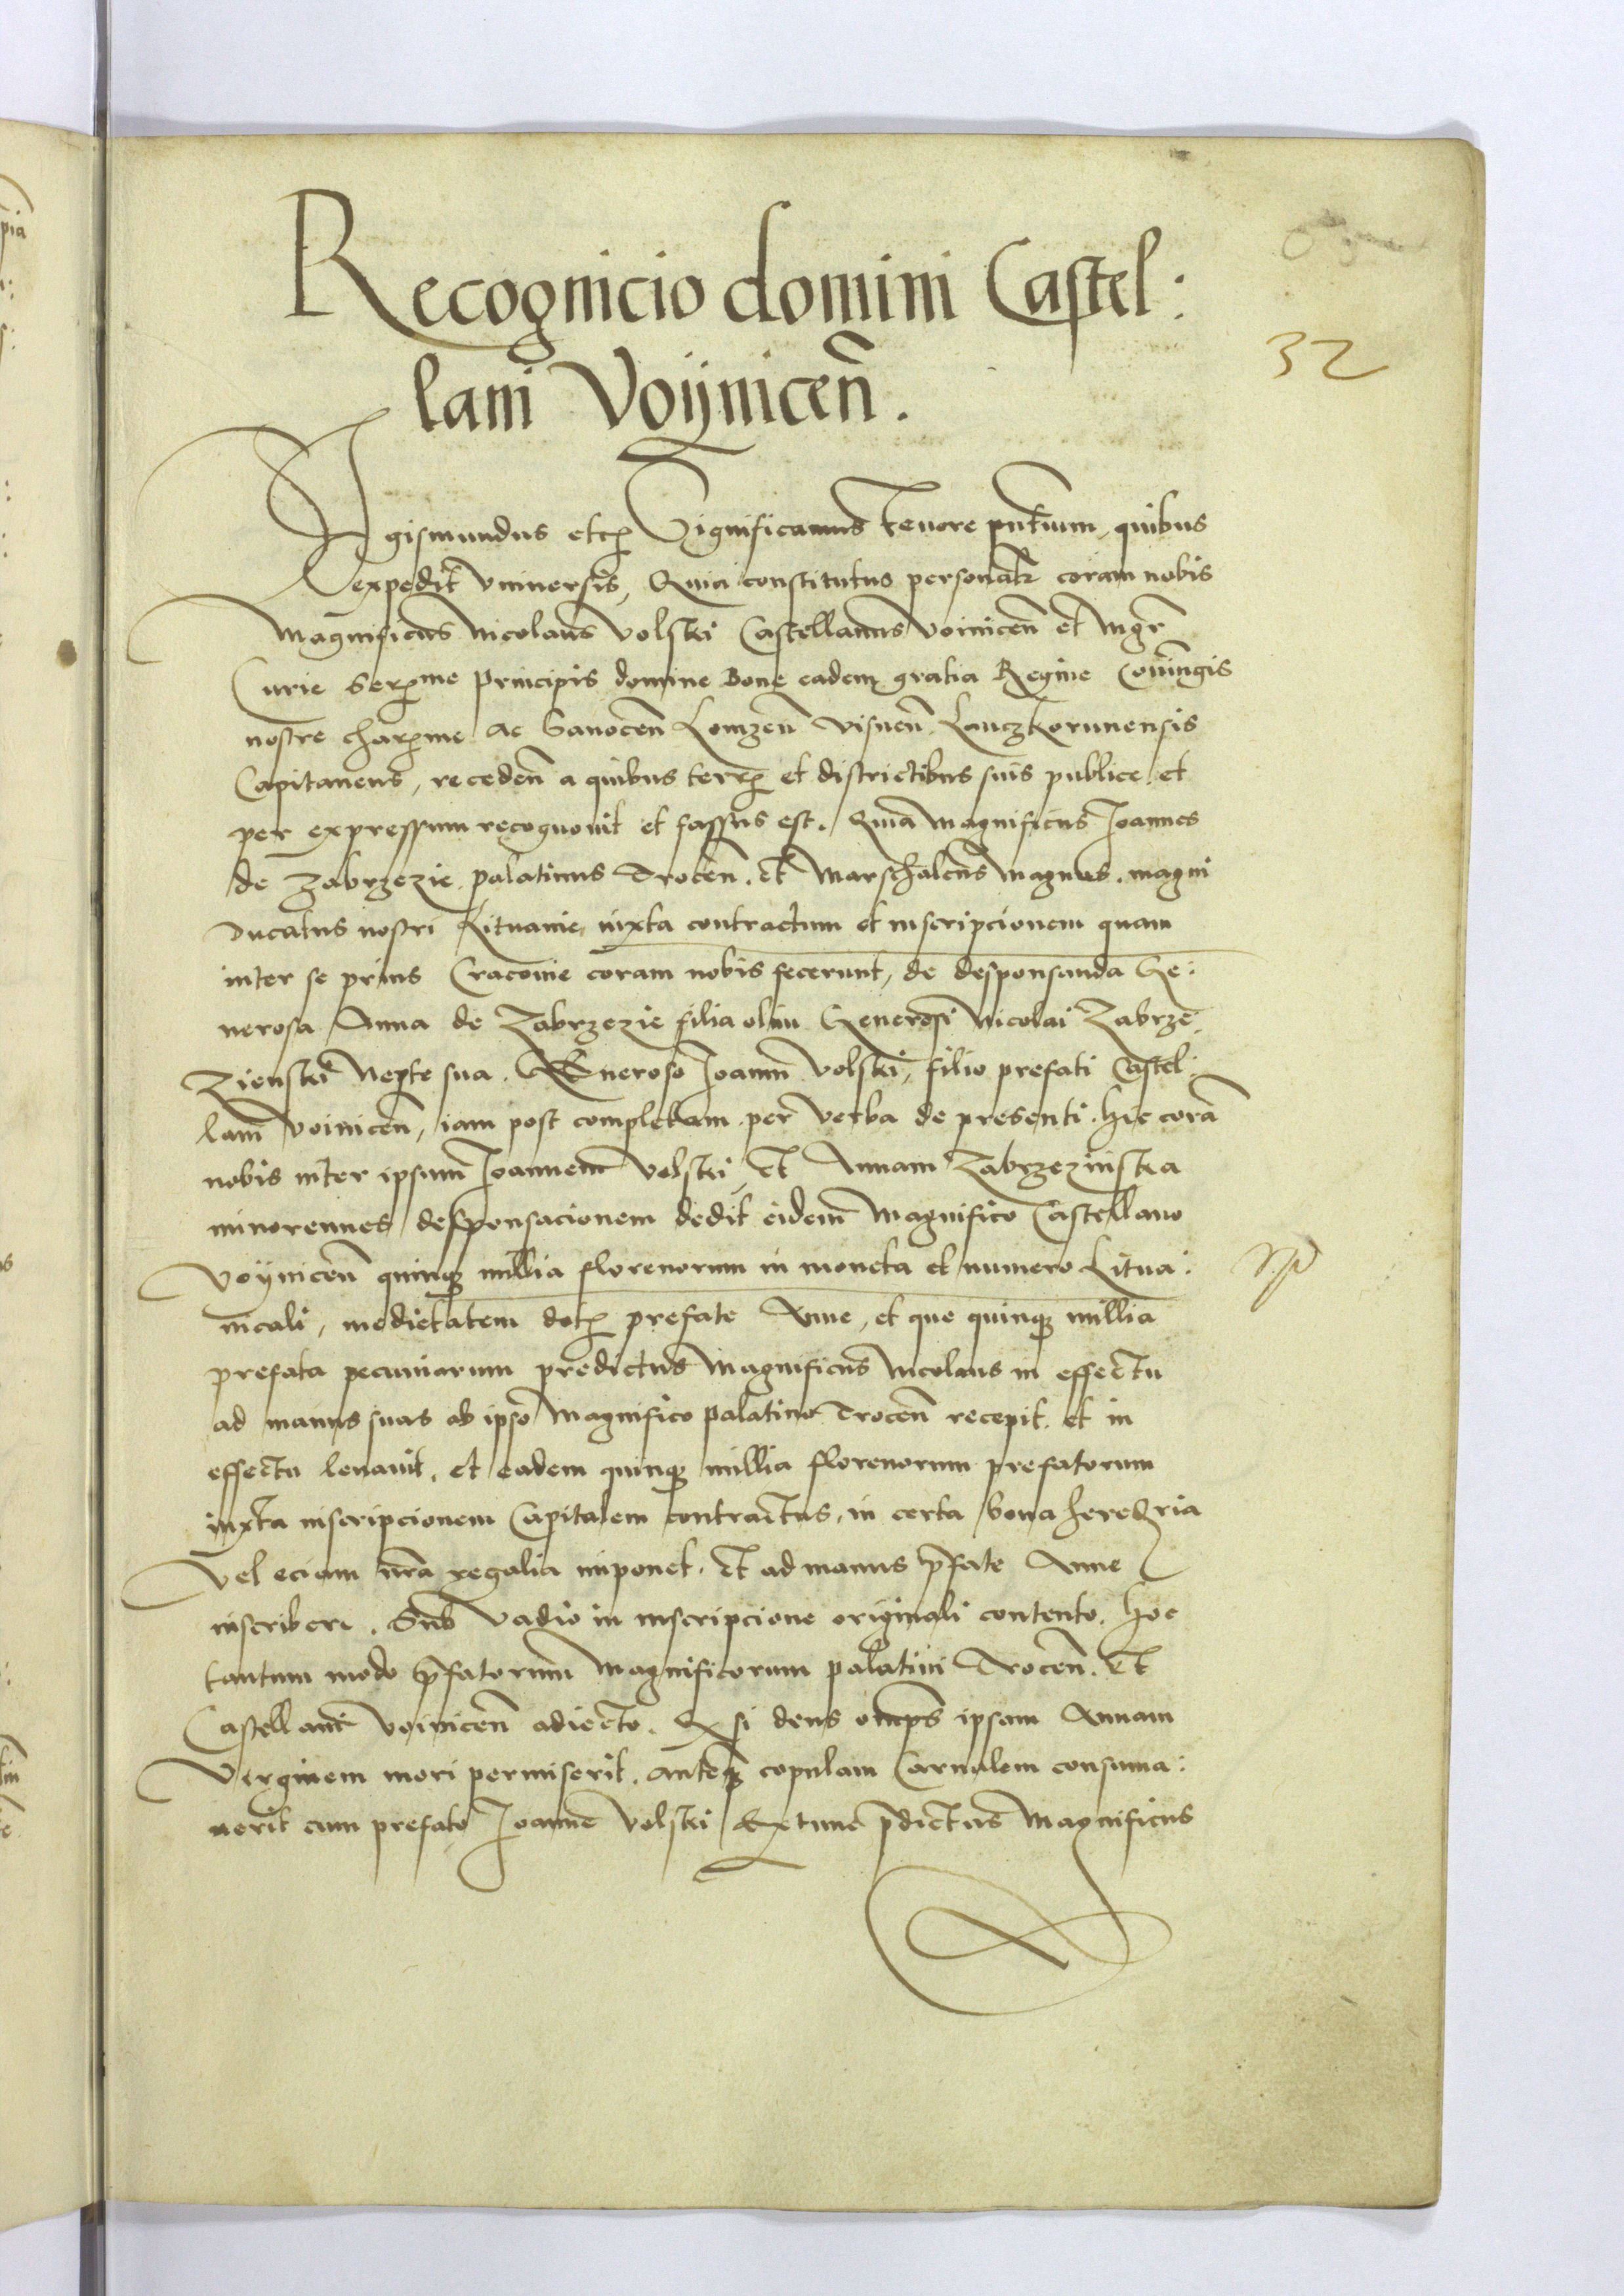 Recognicio domini Castel:
32
lani Voÿnicen̄.
Sigismundus etc̄ Significamus tenore pn̄tium, quibus
expedit vniversis, Quia constitutus personalr̄ coram nobis
Magnificus Nicolaus Volski Castellanus Voinicen̄ et mgr̄
Curie Serme Principis domine Bone eadem gratia Regine Coniugis
nostre charme ac Sanocen̄ Lomzen̄ Visnen̄ Lanczkorunensis
Capitaneus, receden̄ a quibus terris et districtibus suis publice et
per expressum recognouit et fassus est. Quia Magnificus Joannes
de Zabrzezie palatinus Trocen̄. et Marschalcus magnus. magni
Ducatus nostri Lituanie, iuxta contractum et inscripcionem quam
inter se prius Cracouie coram nobis fecerunt, de desponsanda Ge:
nerosa Anna de Zabrzezie filia olim Generosi Nicolai Zabrze
Zienski Nepte sua. Generoso Joanni Volski, filio prefati Castel:
lani Voinicen̄, iam post completam per verba de presenti. hic corā
nobis inter ipsum Joannem Volski et Annam Zabrzezinska
minorennes desponsacionem dedit eidem Magnifico Castellano
Voÿnicen̄ quinq millia florenorum in moneta et numero Litua:
nicali, medietatem dotis prefate Anne, et que quinq millia
prefata pecuniarum predictus Magnificus Nicolaus in effectu
ad manus suas ab ipso Magnifico palatino Trocen̄ recepit. et in
effectu leuauit. et eadem quinq millia florenorum prefatorum
iuxta inscripcionem Capitalem contractus, in certa bona heredria
Vel eciam nr̄a regalia imponet. et ad manus p̄fate Anne
inscribere. Sub vadio in inscripcione originali contento. hoc
tantum modo p̄fatorum Magnificorum palatini Trocen̄. et
Castellani Voinicen̄ adiecto. Q si deus omps ipsam Annam
Verginem mori permiserit. anteq copulam Carnalem consuma:
uerit cum prefato Joanne Volski Extunc p̄dictus Magnificus